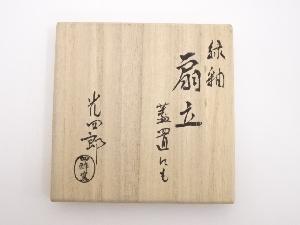 緑釉
扇立
蓋置にも
光四郎